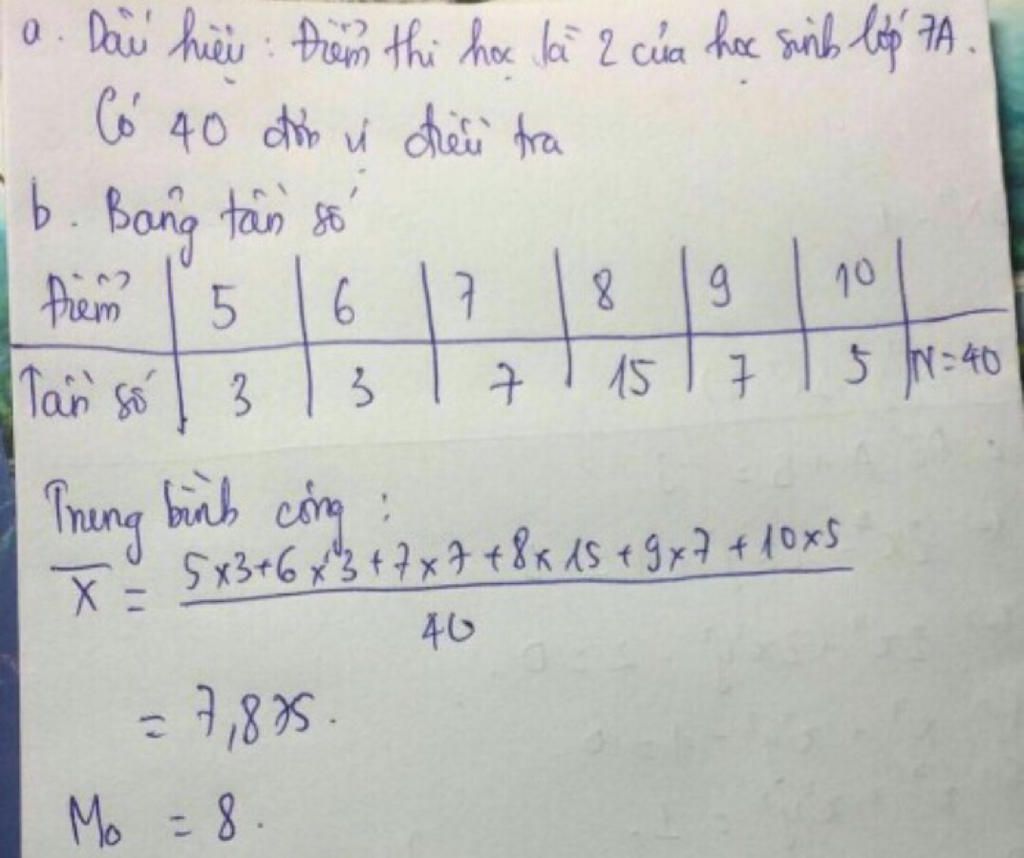 a. Dấu hiệu: Điểm thi học kì 2 của học sinh lớp 7A.
Có 40 đơn vị điều tra
b. Bảng tần số
Điểm 5 6 7 8 9 10
Tần số 3 3 7 15 7 5 N=40
Trung bình cộng:
X̄ = (5x3+6x3+7x7+8x15+9x7+10x5)/40
= 7,875.
M₀ = 8.